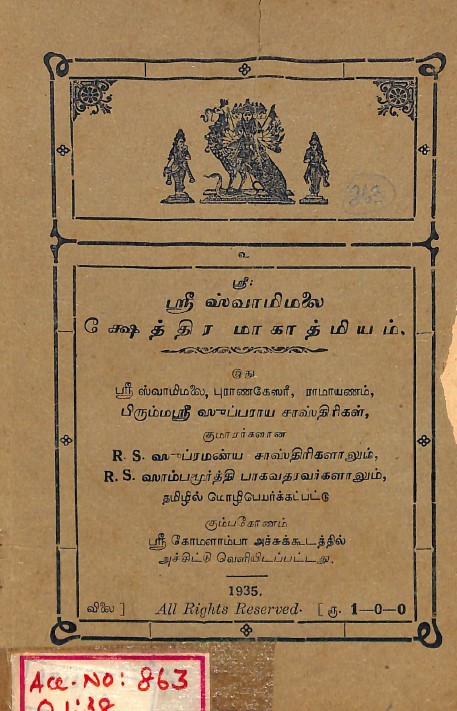 863
உ
ஸ்ரீ:
ஸ்ரீ ஸ்வாமிமலை
க்ஷேத்திர மாகாத்மியம்.
இது
ஸ்ரீ ஸ்வாமிமலை, புராணகேஸரீ, ராமாயணம்,
பிரும்மஸ்ரீ ஸுப்பராய சாஸ்திரிகள்,
குமாரர்களான
R. S. ஸுப்ரமண்ய சாஸ்திரிகளாலும்,
R. S. ஸாம்பமூர்த்தி பாகவதரவர்களாலும்,
தமிழில் மொழிபெயர்க்கப்பட்டு
கும்பகோணம்
ஸ்ரீ கோமளாம்பா அச்சுக்கூடத்தில்
அச்சிட்டு வெளியிடப்பட்டது.
1935.
விலை ] All Rights Reserved. [ ரூ. 1—0—0
Acc. No: 863